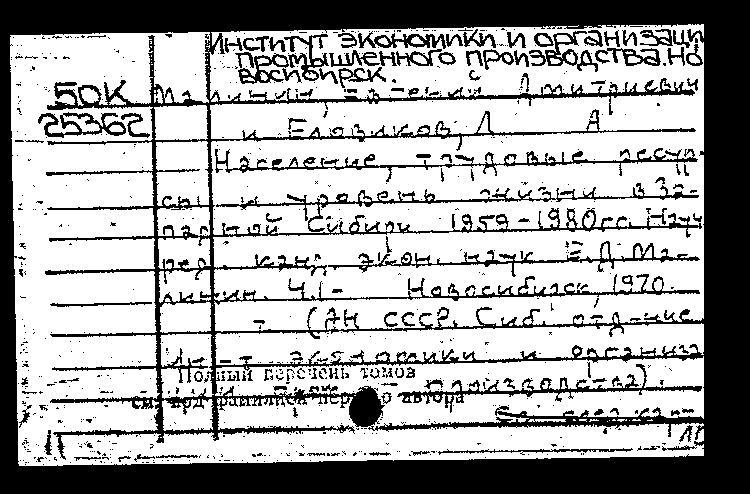 Институт экономики и организаци
промышленного производства. Но
восибирск.
50К Малинин, Евгений Дмитриевич
25362 и Еловиков, Л А
Население, трудовые ресур-
сы и уровень жизни в За-
падной Сибири 1959-1980гг. Науч
ред. канд. экон. наук Е.Д. Ма-
линин. Ч.1- Новосибирск, 1970.
- (АН СССР. Сиб. отд-ние.
Ин-т экономики и организа
Полный перечень томов
пром. производства).
см. под фамилией первого автора
См. след. кат-